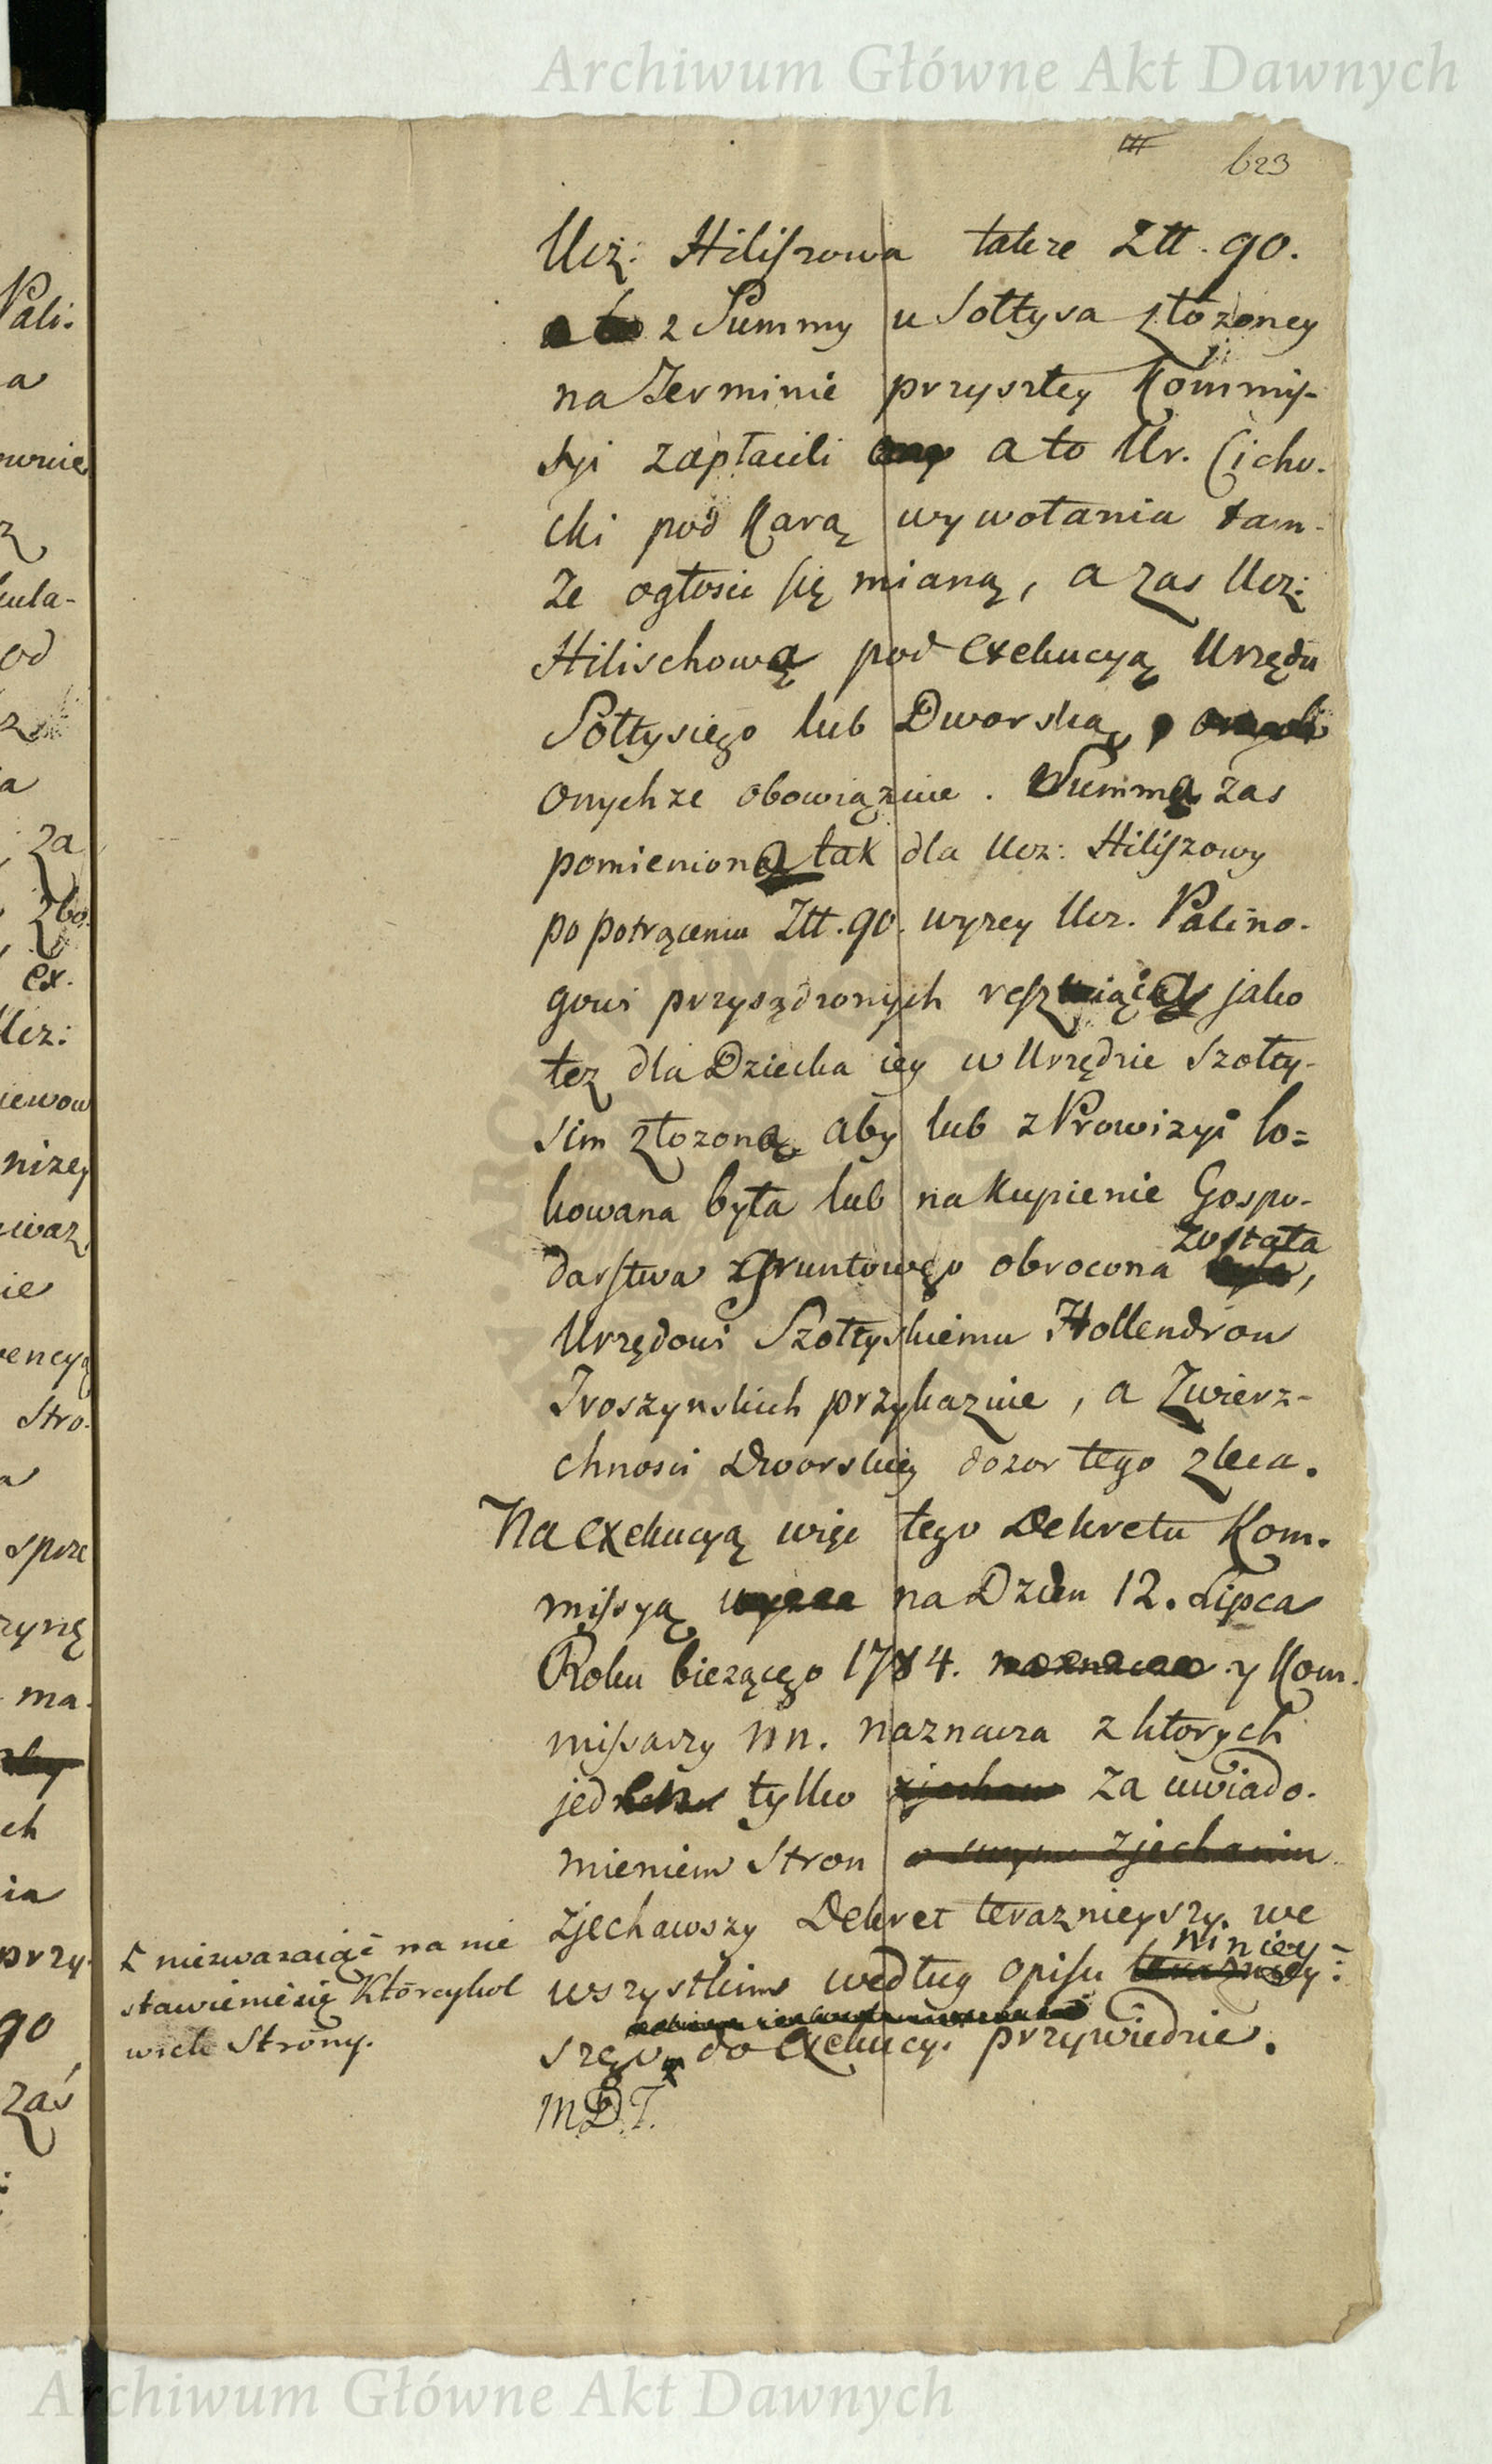 Archiwum Główne Akt Dawnych
623
Ucz: Hiliszowa takze Ztt. 90.
a to z Summy u Sołtysa złożoney
na Terminie przyszłey Kommis-
syi zapłacili a to Ur. Cicho-
cki pod Karą wywołania tam-
że ogłosic się mianą, a zas Ucz:
Hilischową pod Exekucyą Urzędu
Sołtysiego lub Dworską,
onychze obowiąznie. Summą zas
pomienioną tak dla Ucz: Hiliszowy
po potrąceniu Ztt. 90. wyzey Ucz. Palino-
gowi przysądzonych resztuiącą jako
tez dla Dziecka iey w Urzędzie Szołty-
sim złozoną, aby lub z Prowizyi lo=
kowana była lub na kupienie Gospo-
zostala
darstwa gruntowego obrocona była,
Urzędowi Szołtyskiemu Hollendrow
Troszynskich przykaznie, a Zwierz-
chnosci Dworskiey dozor tego zleca.
Na exekucyą więc tego Dekretu Kom-
missyą na Dzien 12. Lipca
Roku biezącego 1784. naznacza y Kom-
missarzy nn. naznacza z ktorych
jeden tylko zjechaw za uwiado-
mieniem Stron o swym zjechaniu
zjechawszy Dekret terazniejszy we
niniey-
wszystkim według opisu terazniey:
szego do exekucyi przywiedzie.
MDT.
niezwazaiąc na nie
stawienie się Którcykol
wiek Strony.
Pali-
a
z
kula-
od
a
za
Zbo.
ex.
Ucz:
niżey
ie
Stro.
sprze
ma-
ch
ia
przy-
go
zaś
Archiwum Główne Akt Dawnych